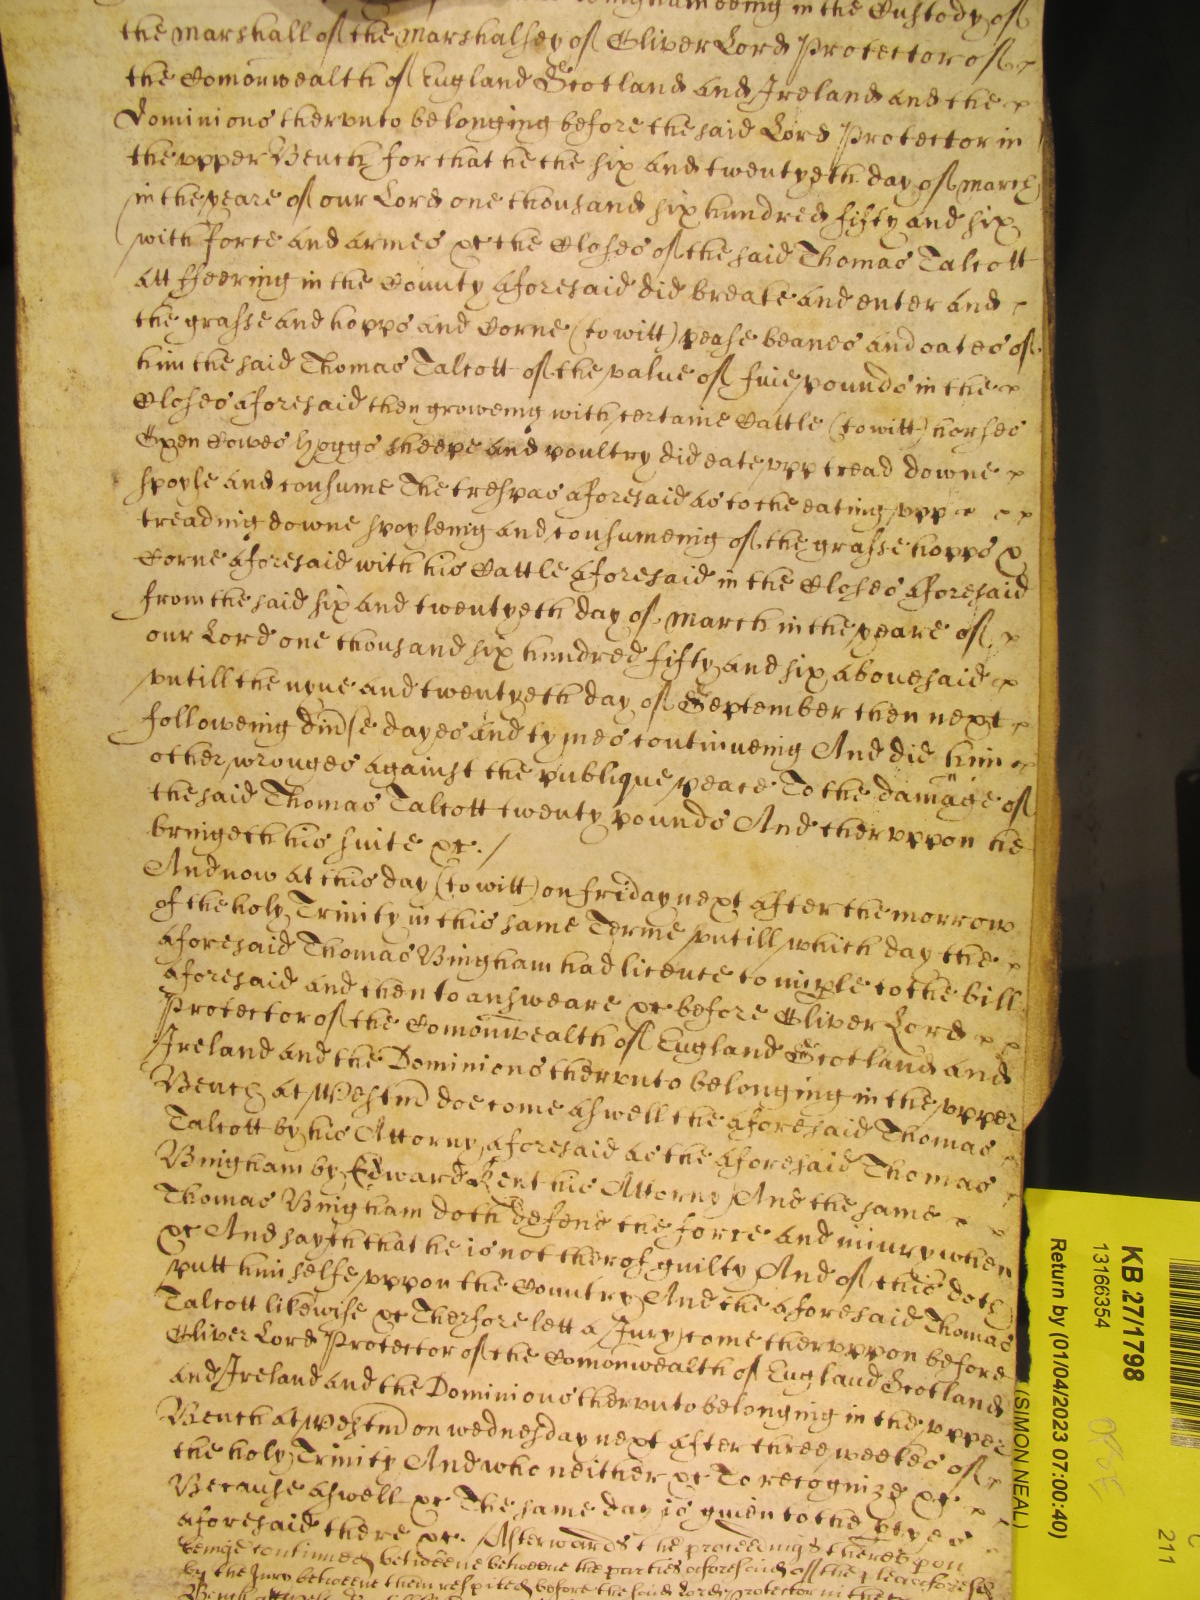 being in the Custody of
the Marshall of the Marshalsey of Oliver Lord Protector of
the Comonwealth of England Scotland and Ireland and the
Dominions therunto belonging before the said Lord Protector in
the upper Bench for that he the six and twentyeth day of March
in the yeare of our Lord one thousand six hundred fifty and six
with force and armes &c the Closes of the said Thomas Talcott
att ffeering in the County aforesaid did breake and enter and
the grasse and hopps and Corne (to witt) pease beanes and oates of
him the said Thomas Talcott of the value of five pounds in the
Closes aforesaid then groweing with certaine Cattle (to witt) horses
Oxen Cowes Hoggs sheepe and poultry did eate upp tread downe
spoyle and consume The trespas aforesaid as to the eating upp
treading downe spoyleing and consumeing of the grasse hopps &
Corne aforesaid with his Cattle aforesaid in the Closes aforesaid
from the said six and twentyeth day of March in the yeare of
our Lord one thousand six hundred fifty and six abovesaid
untill the nyne and twentyeth day of September then next
following divse dayes and tymes continueing And did him
other wronges against the publique peace To the damage of
the said Thomas Talcott twenty pounds And theruppon he
bringeth his suite &c. /
And now at this day (to witt) on friday next after the morrow
of the holy Trinity in this same Terme untill which day the
aforesaid Thomas Bingham had licence to imple to the bill
aforesaid and then to answeare &c before Oliver Lord
Protector of the Comonwealth of England Scotland and
Ireland and the Dominions therunto belonging in the upper
Bench at Westm doe come aswell the aforesaid Thomas
Talcott by his Attorny aforesaid as the aforesaid Thomas
Bingham by Edward Kent his Attorny And the same
Thomas Bingham doth defend the force and iniury when
&c And sayth that he is not therof guilty And of this doth
putt himselfe uppon the Country And the aforesaid Thomas
Talcott likewise &c Therfore lett a Jury come theruppon before
Oliver Lord Protector of the Comonwealth of England Scotland
and Ireland and the Dominions therunto belonging in the upper
Bench at Westm on wednesday next after three weekes of
the holy Trinity And who neither &c To recognize &c
Because aswell &c The same day is given to the ptyes
aforesaid there &c. Afterwards the proceedings thereupon
being continued betweene betweene the parties aforesaid of the plea aforesaid
by the Jury betweene them respited before the said Lord Protector in the
KB 27/1798
13166354
Return by (01/04/2023 07:00:40)
(SIMON NEAL)
211